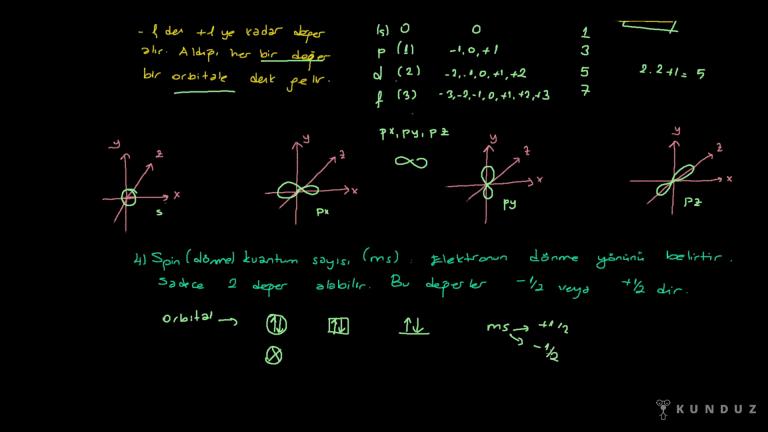 -l den +l ye kadar değer
alır. Aldığı her bir değer
bir orbitale denk gelir.
(s) 0 0 1
p (1) -1, 0, +1 3
d (2) -2, -1, 0, +1, +2 5
f (3) -3, -2, -1, 0, +1, +2, +3 7
2.2+1 = 5
px, py, pz
y z x s
y z x px
y z x py
y z x pz
4) Spin (dönme) kuantum sayısı (ms). Elektronun dönme yönünü belirtir.
Sadece 2 değer alabilir. Bu değerler -1/2 veya +1/2 dir.
orbital → ↑↓ ↑↓ ↑↓
ms → +1/2
→ -1/2
KUNDUZ